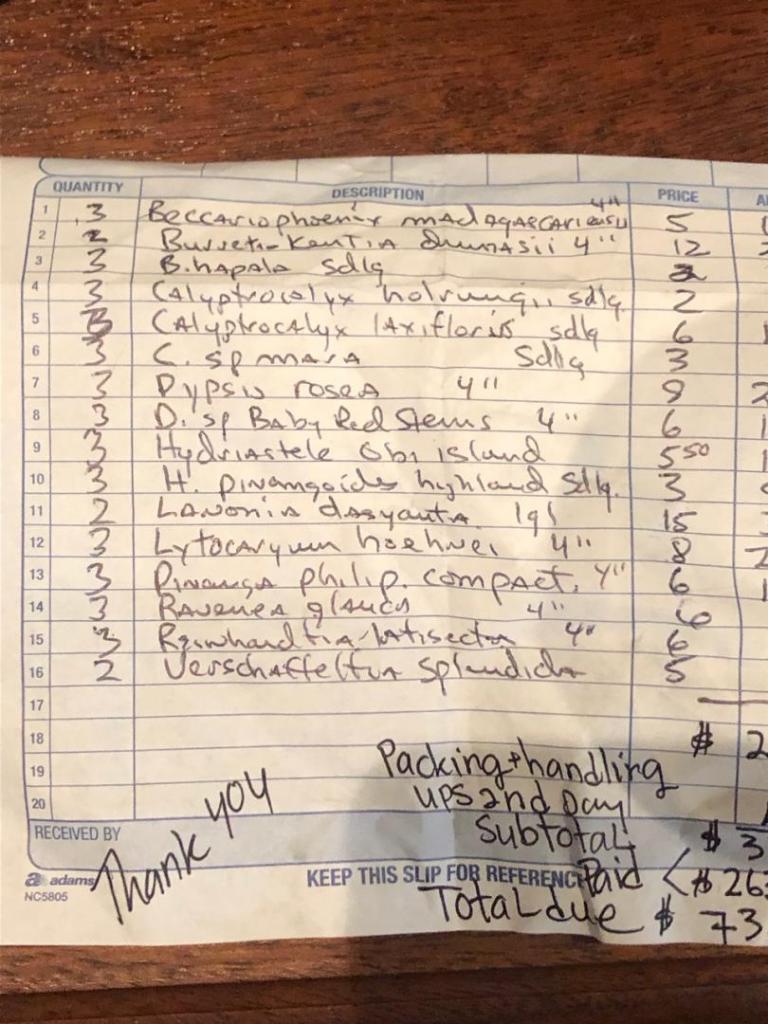 QUANTITY DESCRIPTION PRICE
1 3 Beccariophoenix madagascariensis 4" 5
2 2 Burretio-Kentia dumasii 4" 12
3 3 B. hapala sdlg 2
4 3 Calyptrocalyx holrungii sdlg 2
5 3 Calyptrocalyx laxifloris sdlg 6
6 3 C. sp mara Sdlg 3
7 3 Dypsis rosea 4" 9
8 3 D. sp Baby Red Stems 4" 6
9 3 Hydriastele Obi island 5 50
10 3 H. pinangoides highland Sdlg. 3
11 2 Lanonia dasyanta 1gl 15
12 3 Lytocaryum hoehnei 4" 8
13 3 Pinanga philip. compact. 4" 6
14 3 Ravenea glauca 4" 6
15 3 Reinhardtia latisecta 4" 6
16 2 Verschaffeltia splendida 5
17
18 $ 2
19 Packing + handling
20 UPS 2nd Day
RECEIVED BY Subtotal $ 3
Thank you
adams KEEP THIS SLIP FOR REFERENCE Paid < $ 26
NC5805 Total due $ 73